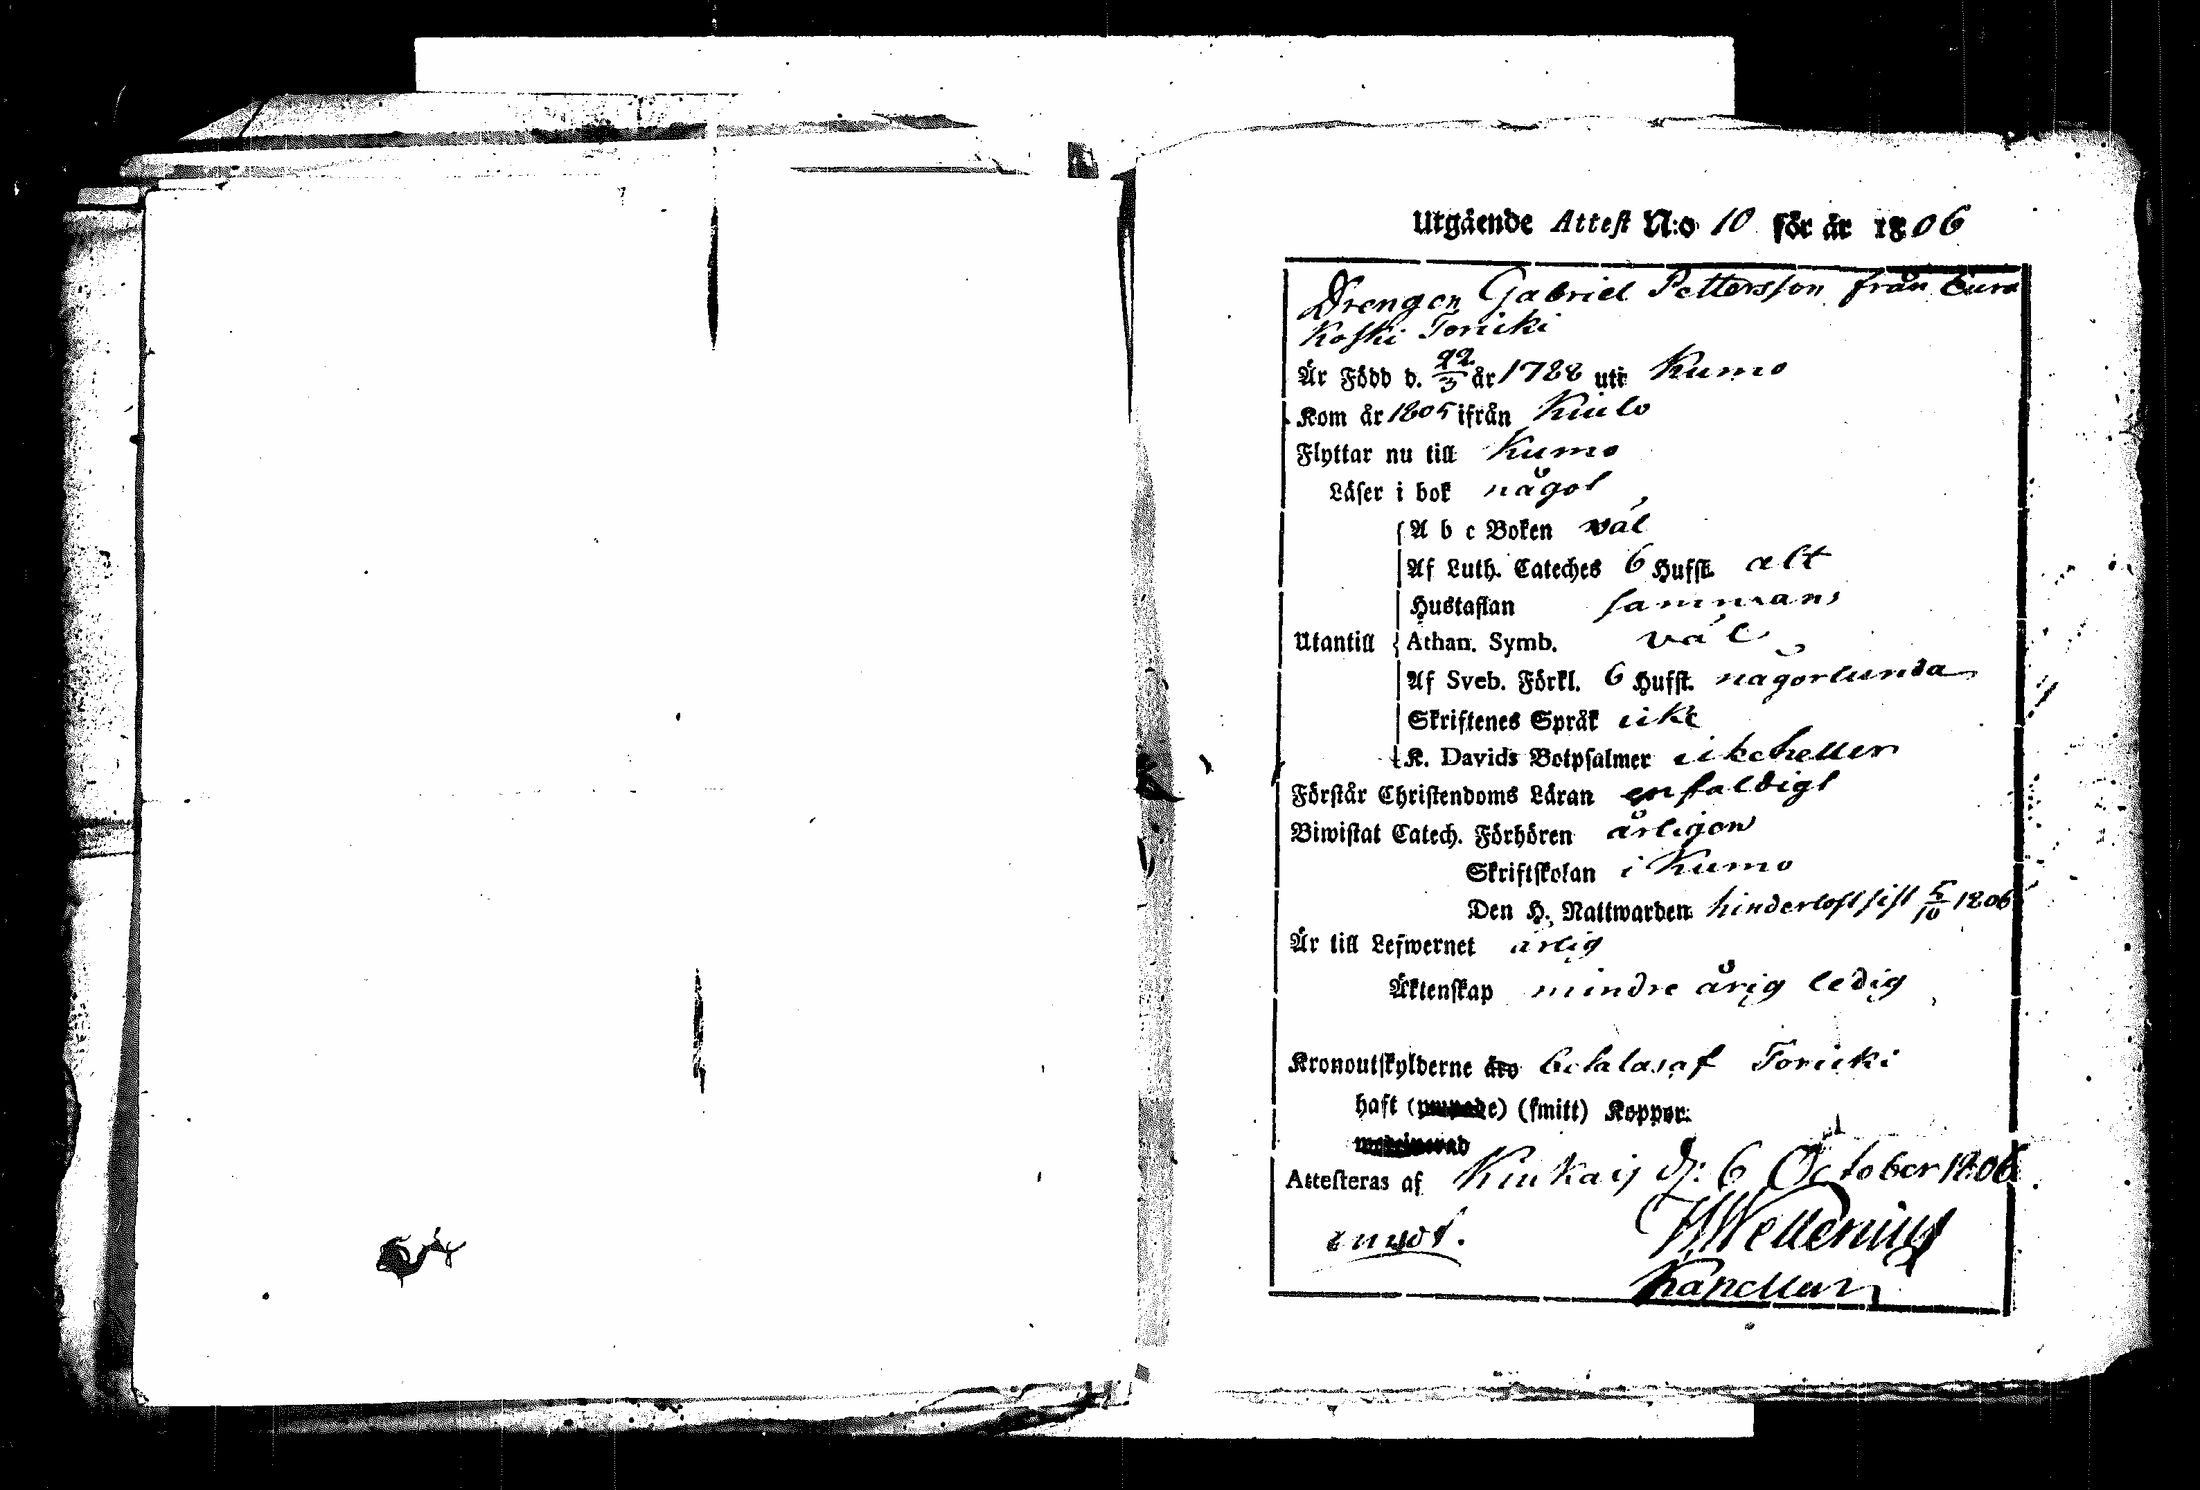 Utgående Attest N:o 10 för år 1806
Drengen Gabriel Pettersson från Eura
Koski Toricki
Är Född d. 22/3 år 1788 uti Kumo
Kom år 1805 ifrån Kiulo
Flyttar nu till Kumo
Läser i bok någol
A b c Boken väl
Af Luth. Cateches 6 Hufst. alt
Hustaflan sammans
Utantill Athan. Symb. väl
Af Sveb. Förkl. 6 Hufst. någorlunda
Skriftenes Språk icke
K. Davids Botpsalmer icke heller
Förstår Christendoms Läran enfaldigt
Biwistat Catech. Förhören årligen
Skriftskolan i Kumo
Den H. Nattwarden hinderlöst sist 5/10 1806
Är till Lefwernet ärlig
Äktenskap mindre årig ledig
Kronoutskylderne äro betalas af Toricki
haft (smitt) Koppor.
Attesteras af Kiukais d: 6 October 1806
W Wellenius
Kapellan